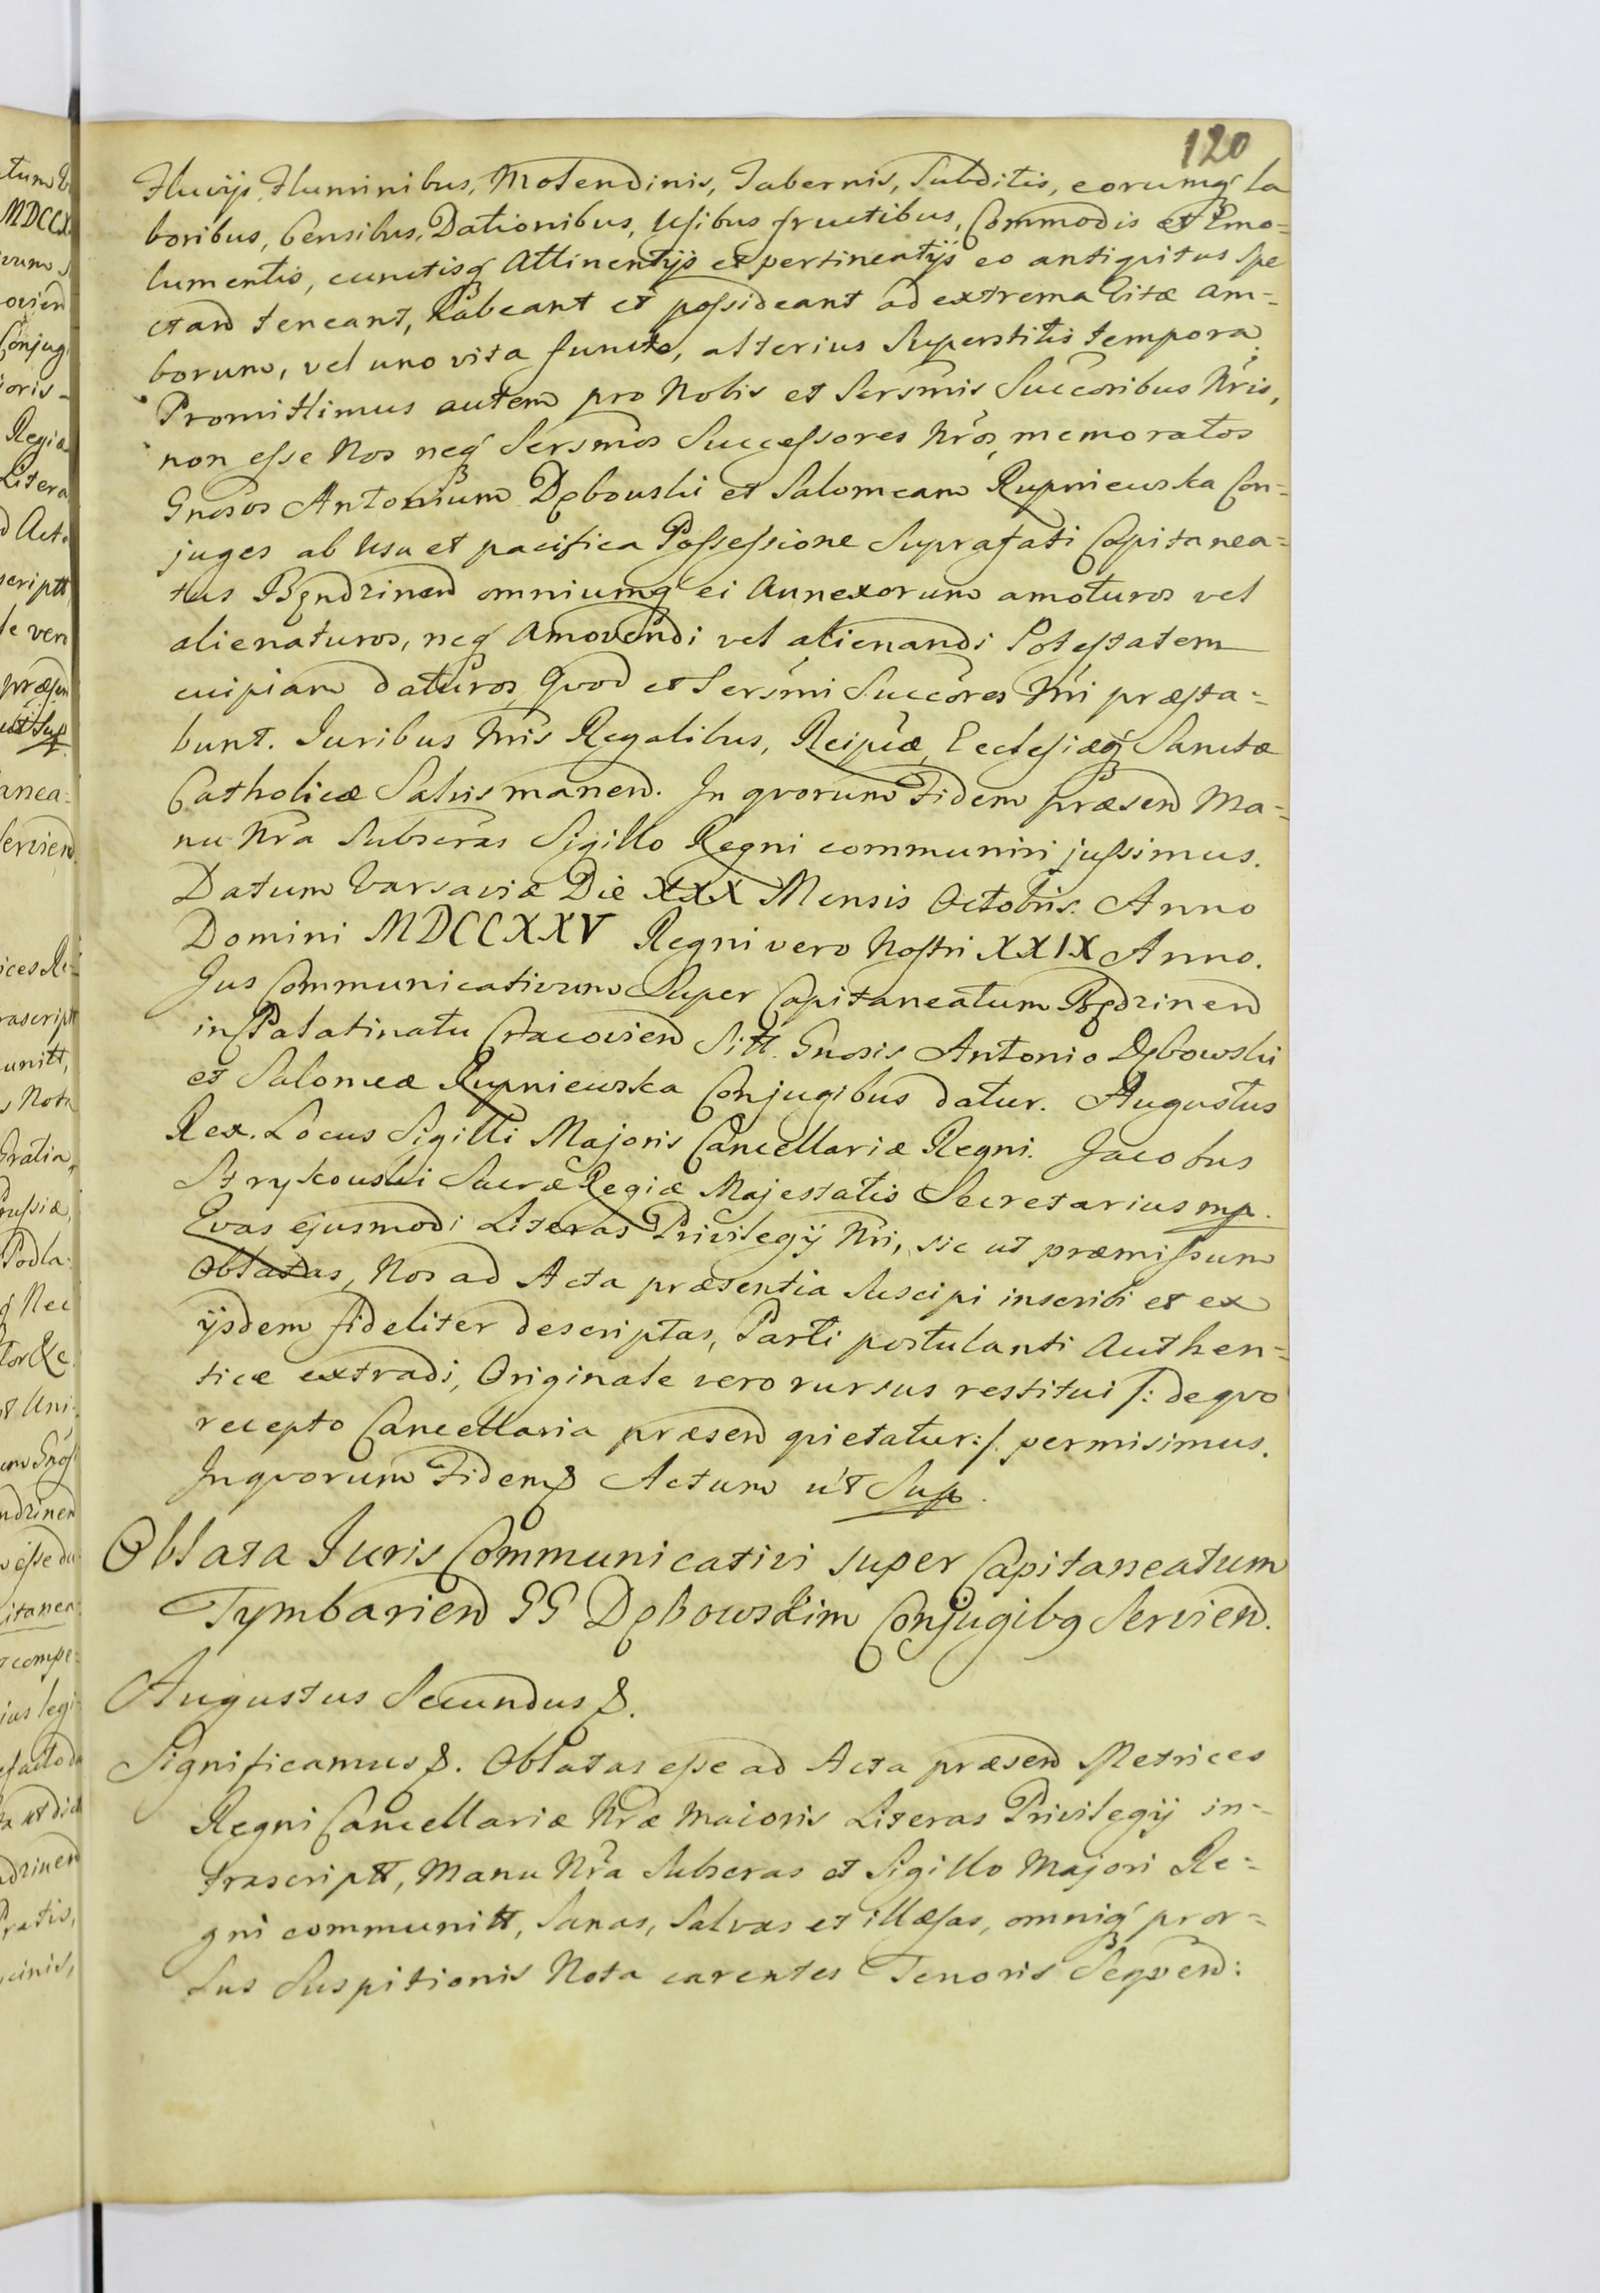 120
Fluvijs, Fluminibus, Molendinis, Tabernis, Subditis, eorumq́ la
boribus, Censibus, Dationibus, Usibus fructibus, Commodis et Emo=
lumentis, cunctisq́ Attinentijs et pertinentijs eo antiqvitus spe
ctand teneant, habeant et possideant ad extrema Vitæ am=
borum, vel uno vita functo, alterius Superstitis tempora.
Promittimus autem pro Nobis et Sersmis Succoribus Nris,
non esse Nos neq́ Sersmos Successores Nros, memoratos
Gnosos Antonium Dębowski et Salomeam Rupniewska Con=
juges ab Usu et pacifica Possessione Suprafati Capitanea=
tus Bęndzinen omniumq́ ei Annexorum amoturos vel
alienaturos, neq́ Amovendi vel alienandi Potestatem
cuipiam daturos, Qvod et Sersmi Succores Nri præsta=
bunt. Juribus Nris Regalibus, Reipcæ, Ecclesiæq́ Sanctæ
Catholicæ Salvis manen. In qvorum Fidem præsen Ma=
nu Nra Subscras Sigillo Regni communiri jussimus.
Datum Varsaviæ Die XXX Mensis Octobris. Anno
Domini MDCCXXV Regni vero Nostri XXIX Anno.
Jus Communicativum Super Capitaneatum Będzinen
in Palatinatu Cracovien Sitt. Gnosis Antonio Dębowski
et Salomeæ Rupniewska Conjugibus datur. Augustus
Rex. Locus Sigilli Majoris Cancellariæ Regni. Jacobus
Strykowski Sacræ Regiæ Majestatis Secretarius mp.
Qvas ejusmodi Literas Privilegij Nri, sic ut præmissum
Oblatas, Nos ad Acta præsentia Suscipi inscribi et ex
ijsdem fideliter descriptas, Parti postulanti Authen=
ticæ extradi, Originale vero rursus restitui /: de qvo
recepto Cancellaria præsen qvietatur:/ permisimus.
In qvorum Fidem & Actum ut Sup.
Oblata Juris Communicativi super Capitaneatum
Tymbarien GG Dębowskim Conjugibq Servien.
Augustus Secundus &.
Significamus &. Oblatas esse ad Acta præsen Metrices
Regni Cancellariæ Nræ Maioris Literas Privilegij in=
frascriptt, Manu Nra Subscras et Sigillo Majori Re=
gni communitt, Sanas, Salvas et illæsas, omniq́ pror=
sus Suspitionis Nota carentes Tenoris Seqven: